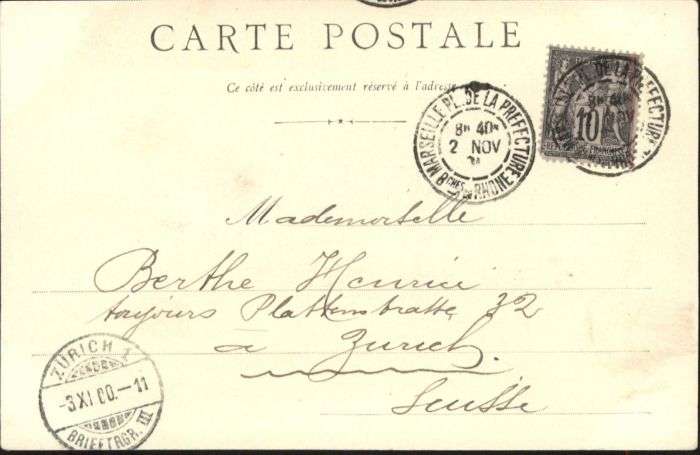 CARTE POSTALE
Ce côté est exclusivement réservé à l'adresse
MARSEILLE PL. DE LA PRÉFECTURE
8H 40M
2 NOV
BCHES DU RHONE
10
Mademoiselle
Berthe
toujours Plattenstrasse 32
à Zurich.
Suisse
ZÜRICH 1
-3.XI.00.-11
BRIEFTRGR. III